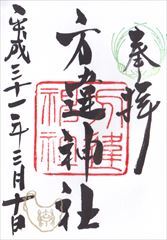 奉拝
方違神社
平成三十一年三月十日